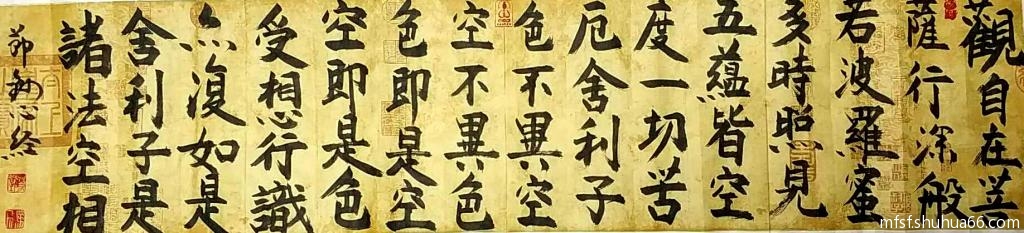 觀自在菩
薩行深般
若波羅蜜
多時照見
五蘊皆空
度一切苦
厄舍利子
色不異空
空不異色
色即是空
空即是色
受想行識
亦復如是
舍利子是
諸法空相
節錄心經
mfsf.shuhua66.com